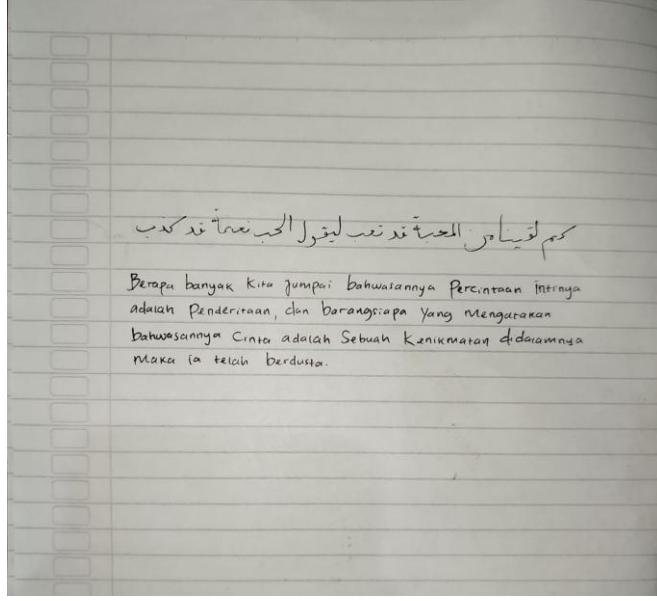 كم لقينا من المحبة قد تعب ليقول الحب نعمة قد كذب
Berapa banyak kita jumpai bahwasannya Percintaan intinya
adalah Penderitaan, dan barangsiapa yang mengatakan
bahwasannya Cinta adalah Sebuah Kenikmatan didalamnya
maka ia telah berdusta.